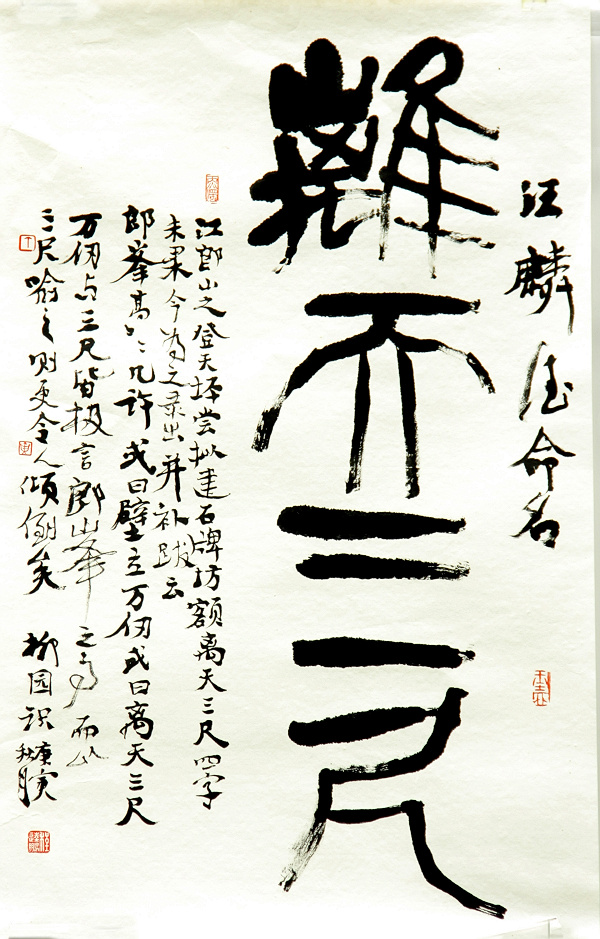 汪麟命名
離天三尺
江郎山之登天坪尝拟建石牌坊额离天三尺四字
未果今为之录出并补跋云
郎峯高高几许或曰壁立万仞或曰离天三尺
万仞与三尺皆极言郎山峯之高而以
三尺喻之则更令人倾倒矣 柳园识 庚寅秋月